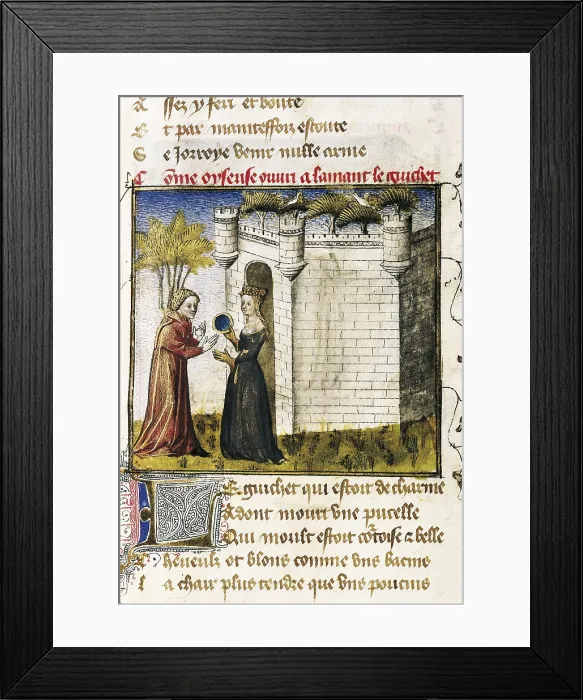 A ssez y feri et boute
E t par maintesfoiz escoute
S e Jorroye venir nulle arme
Cõme oyseuse ouvri a lamant le guichet
LE guichet qui estoit de charme
Adont mouvri vne pucelle
Qui moult estoit cõtoise & belle
Cheveulz ot blons comme vns bacins
l a chair plus tendre que vns poucins